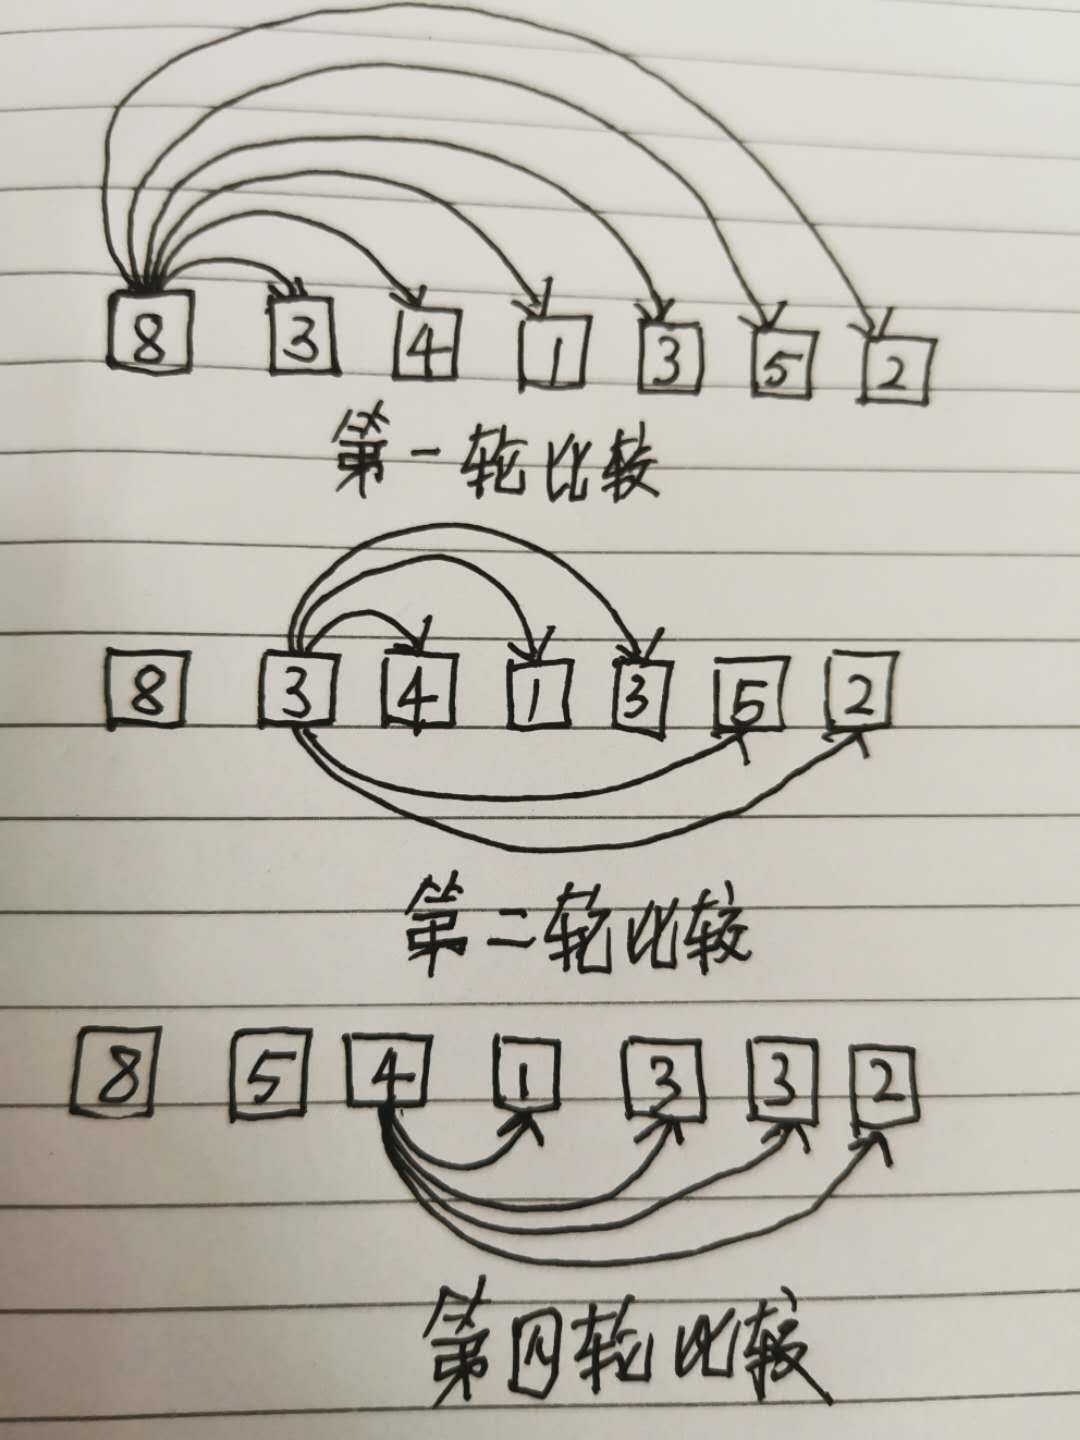 8 3 4 1 3 5 2
第一轮比较
8 3 4 1 3 5 2
第二轮比较
8 5 4 1 3 3 2
第四轮比较